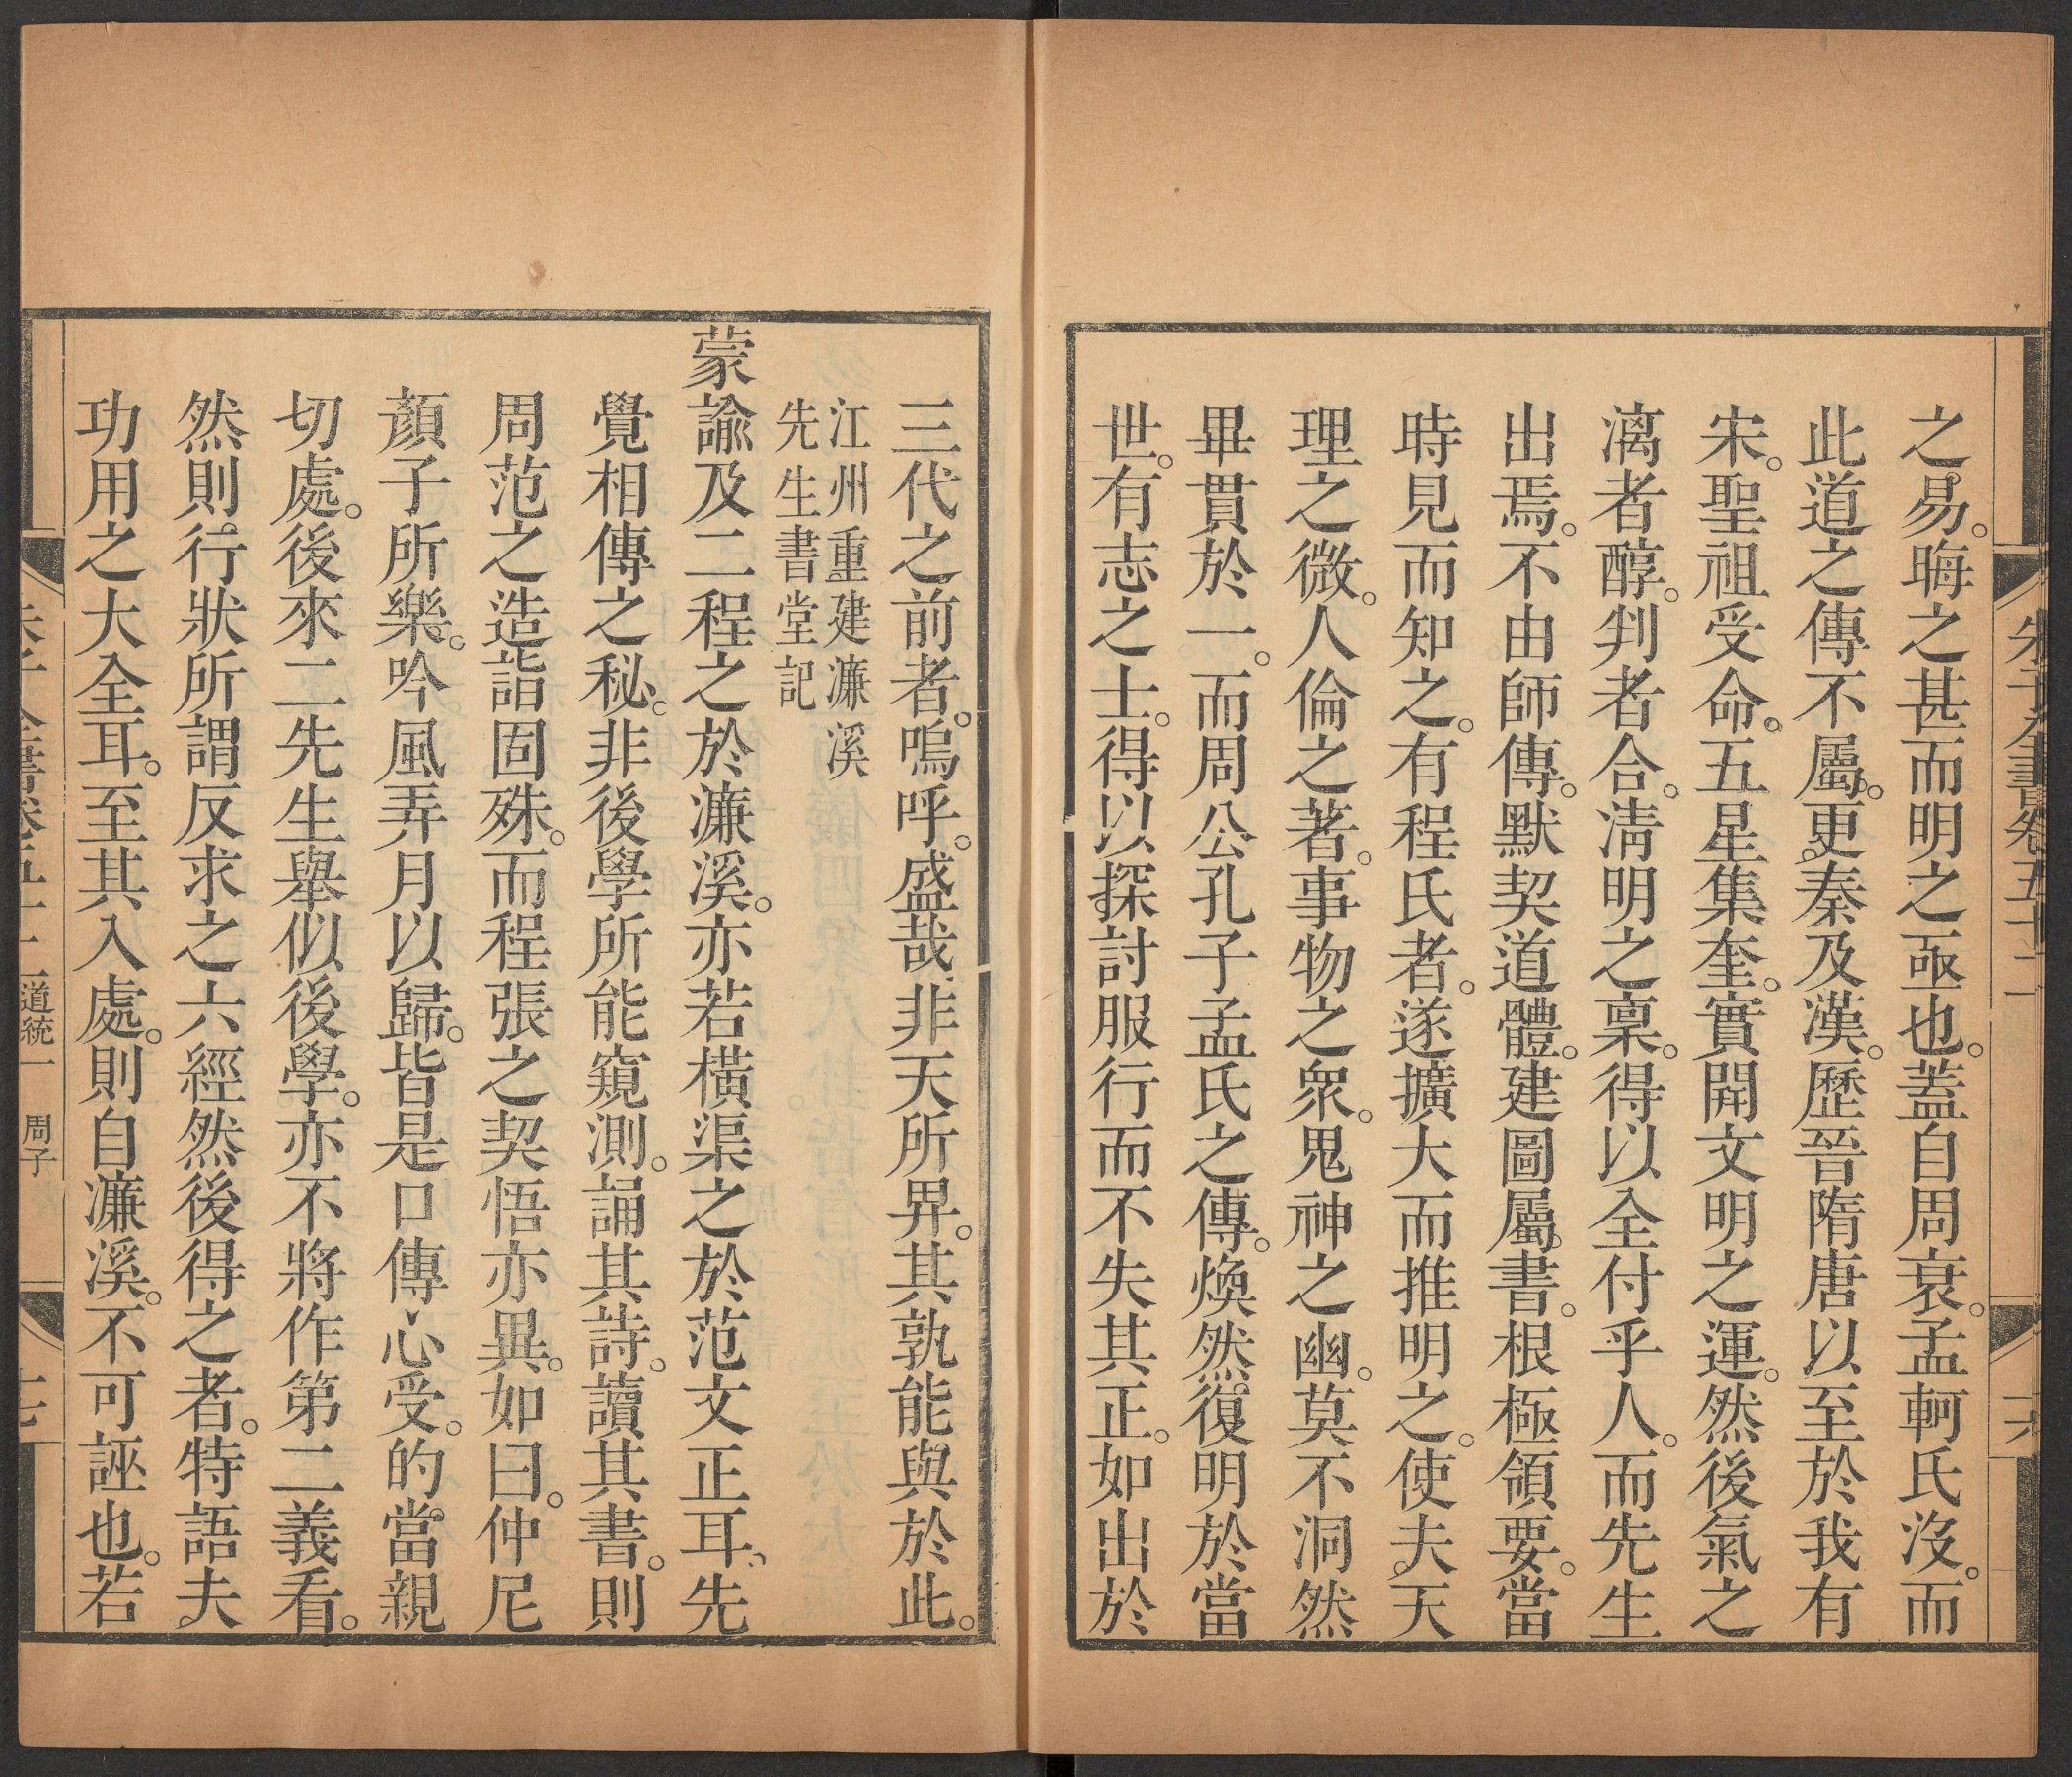 朱子全書卷五十二
十六
之易。晦之甚而明之亟也。蓋自周衰。孟軻氏沒。而
此道之傳不屬。更秦及漢。歷晉隋唐以至於我有
宋。聖祖受命。五星集奎。實開文明之運。然後氣之
漓者醇。判者合。清明之稟。得以全付乎人。而先生
出焉。不由師傳。默契道體。建圖屬書。根極領要。當
時見而知之。有程氏者。遂擴大而推明之。使夫天
理之微。人倫之著。事物之衆。鬼神之幽。莫不洞然
畢貫於一。而周公孔子孟氏之傳。煥然復明於當
世。有志之士。得以探討服行而不失其正。如出於
三代之前者。嗚呼。盛哉。非天所畀。其孰能與於此。
江州重建濂溪
先生書堂記
蒙諭及二程之於濂溪。亦若橫渠之於范文正耳、先
覺相傳之秘。非後學所能窺測。誦其詩。讀其書。則
周范之造詣固殊。而程張之契悟亦異。如曰。仲尼
顏子所樂。吟風弄月以歸。皆是口傳心受。的當親
切處。後來二先生舉似後學。亦不將作第二義看。
然則行狀所謂反求之六經然後得之者。特語夫
功用之大全耳。至其入處。則自濂溪。不可誣也。若
朱子全書卷五十二 道統一 周子
十七